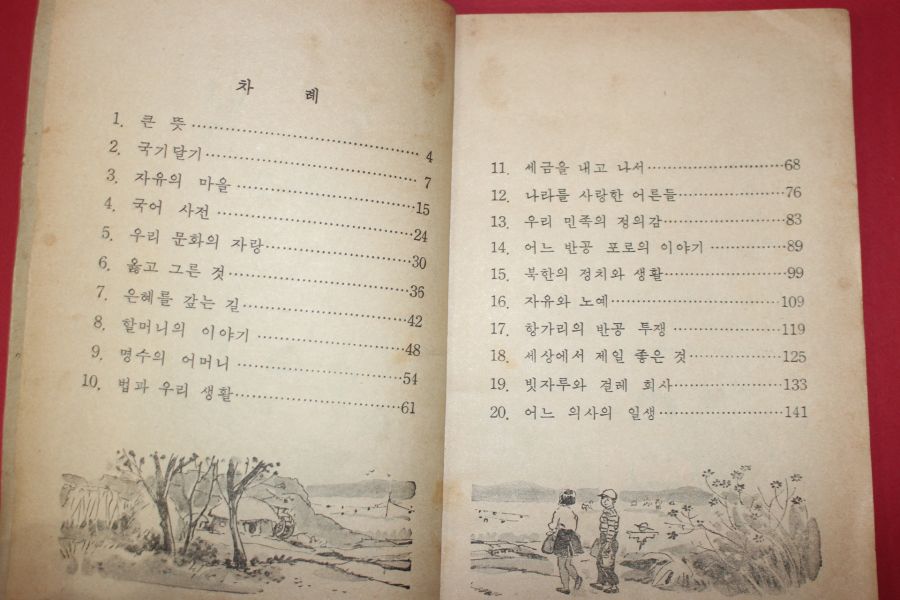 차 례
1. 큰 뜻 4
2. 국기달기 7
3. 자유의 마을 15
4. 국어 사전 24
5. 우리 문화의 자랑 30
6. 옳고 그른 것 36
7. 은혜를 갚는 길 42
8. 할머니의 이야기 48
9. 명수의 어머니 54
10. 법과 우리 생활 61
11. 세금을 내고 나서 68
12. 나라를 사랑한 어른들 76
13. 우리 민족의 정의감 83
14. 어느 반공 포로의 이야기 89
15. 북한의 정치와 생활 99
16. 자유와 노예 109
17. 항가리의 반공 투쟁 119
18. 세상에서 제일 좋은 것 125
19. 빗자루와 걸레 회사 133
20. 어느 의사의 일생 141